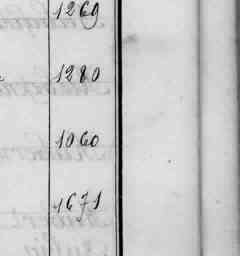 1269
1280
1060
1671